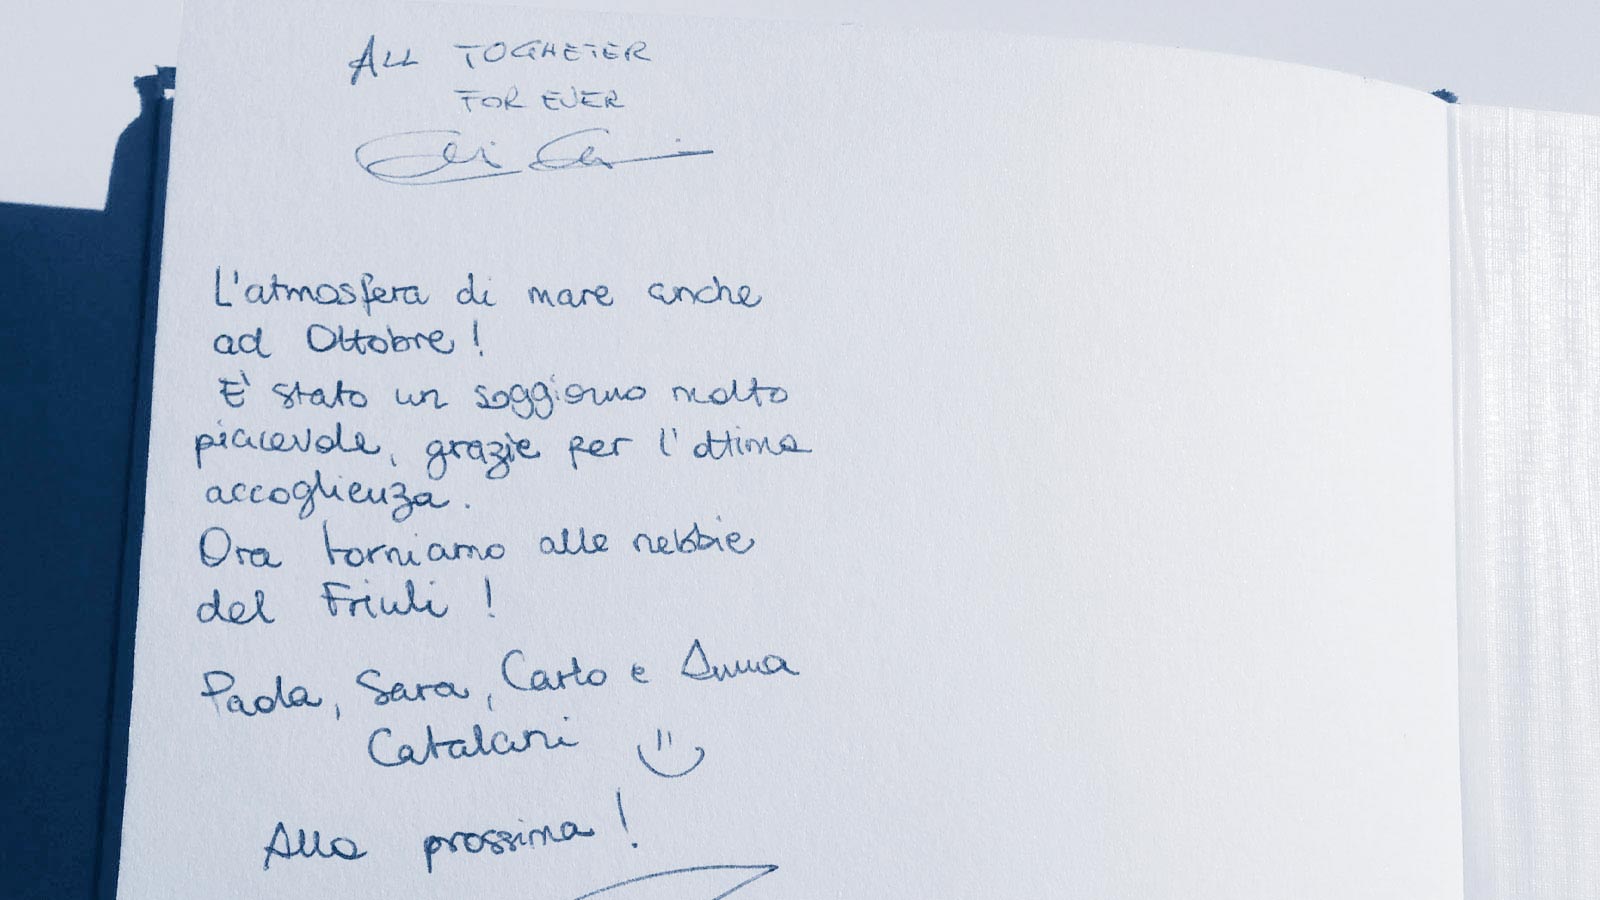 ALL TOGHETER
FOR EVER
L'atmosfera di mare anche
ad Ottobre!
E' stato un soggiorno molto
piacevole, grazie per l'ottima
accoglienza.
Ora torniamo alle nebbie
del Friuli!
Paola, Sara, Carlo e Anna
Catalani
Alla prossima!